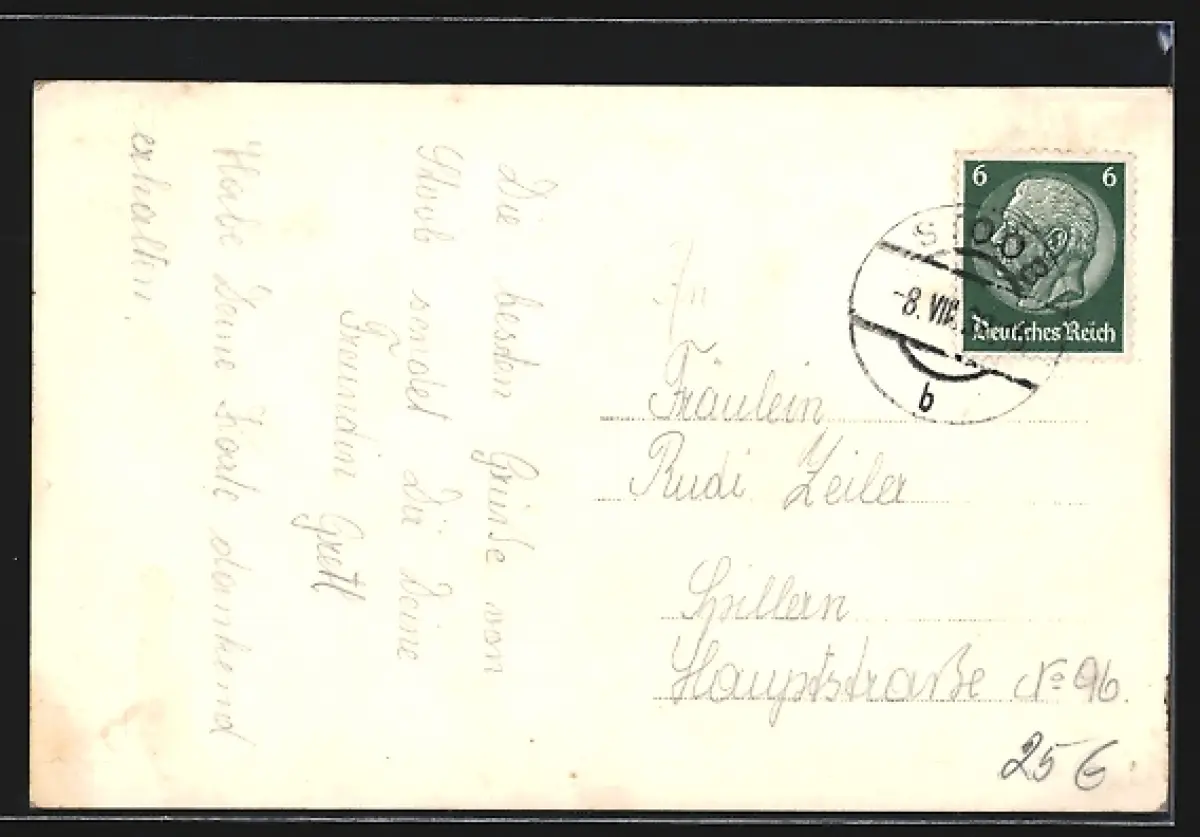 Die besten Grüße von
sendet Dir Deine
Freundin Gretl
Habe Deine Karte dankend
erhalten.
6 6
Deutsches Reich
-8. VII
b
Fräulein
Rudi Zeiler
Spillern
Hauptstraße No 96.
25 G